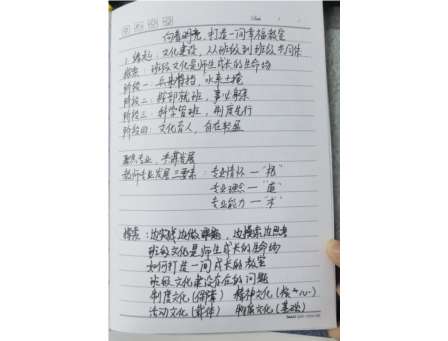 向着明亮，打造一间幸福教室
缘起：文化建设，从班级到班级共同体
探索：班级文化是师生成长的生命场
阶段一：兵来将挡，水来土掩
阶段二：躬身
阶段三：科学管班，制度先行
阶段四：文化育人，自在轻盈
聚焦专业，丰富发展
教师专业发展三要素：专业情怀—"根"
专业理念—"道"
专业能力—"术"
探索：边实践边做，边摸索边思考
班级文化是师生成长的生命场
如何打造一间成长的教室
班级文化建设存在的问题
制度文化(保障) 精神文化(核心)
活动文化(载体) 物质文化(基础)